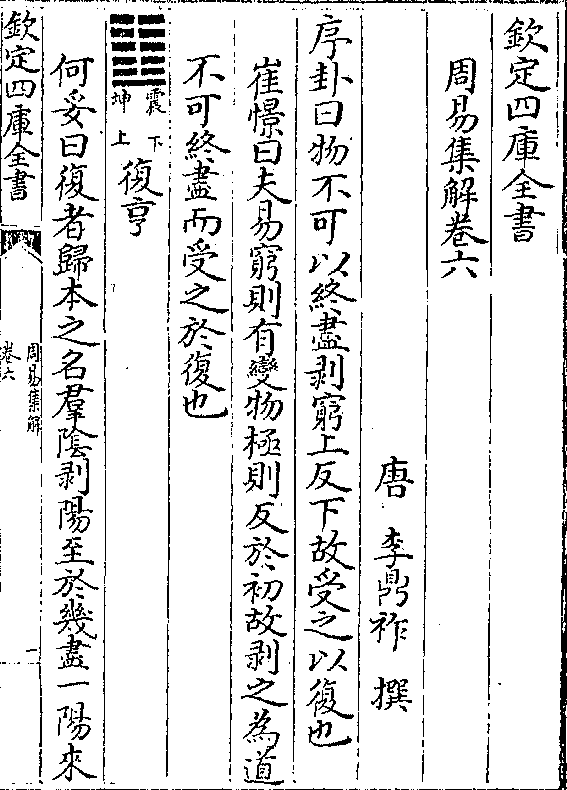 欽定四庫全書
周易集解卷六
唐 李鼎祚 撰
序卦曰物不可以終盡剥窮上反下故受之以復也
崔憬曰夫易窮則有變物極則反於初故剥之為道
不可終盡而受之於復也
震下
坤上
復亨
何妥曰復者歸本之名羣陰剥陽至於幾盡一陽來
欽定四庫全書
周易集解
卷六
一